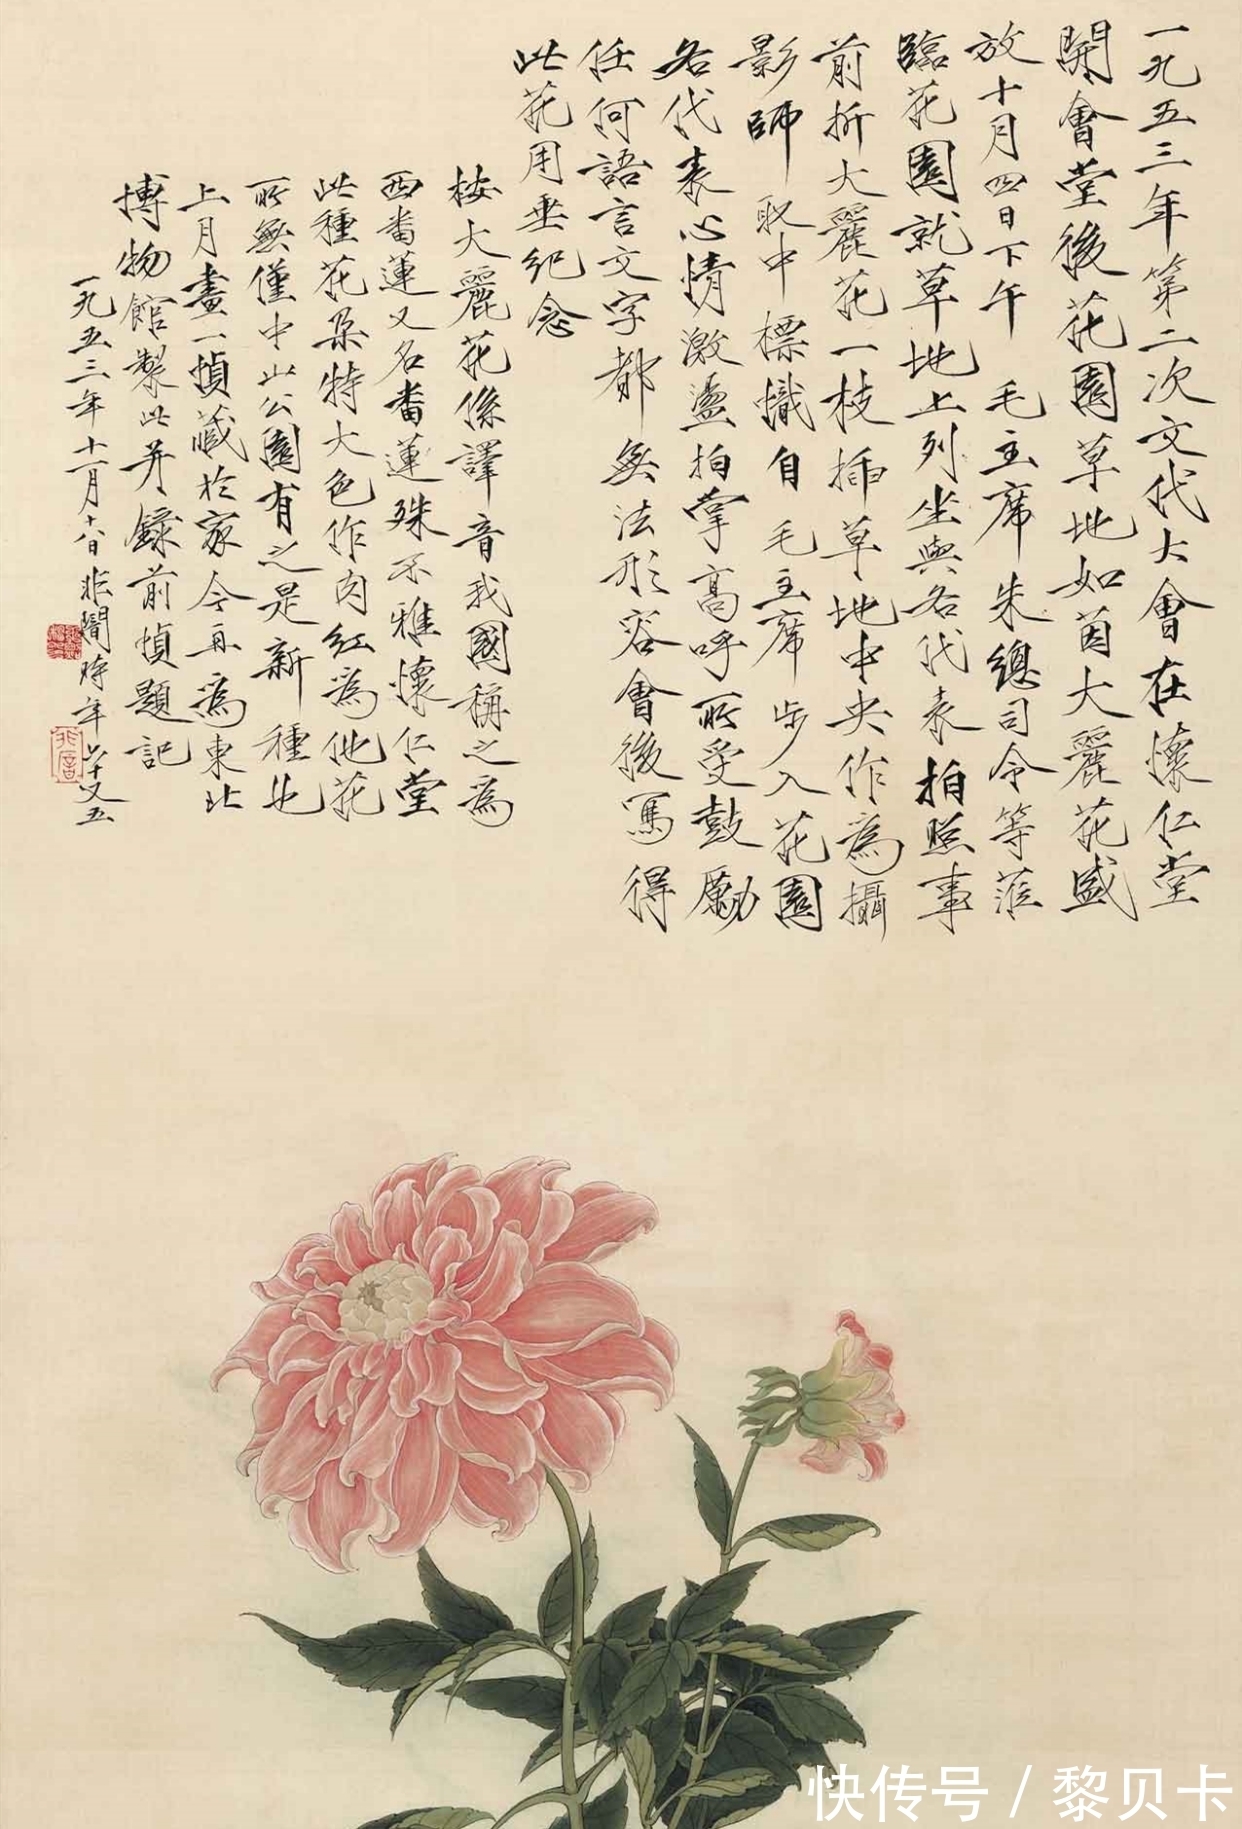 一九五三年第二次文代大會在懷仁堂
開會堂後花園草地如茵大麗花盛
放十月四日下午 毛主席朱總司令等蒞
臨花園就草地上列坐與各代表拍照事
前折大麗花一枝插草地中央作為攝
影師取中標幟自 毛主席步入花園
各代表心情激盪拍掌高呼所受鼓勵
任何語言文字都無法形容會後寫得
此花用垂紀念
按大麗花係譯音我國稱之為
西番蓮又名番蓮殊不雅懷仁堂
此種花朶特大色作肉紅為他花
所無僅中山公園有之是新種也
上月畫一幀藏於家今再為東北
博物館製此并錄前幀題記
一九五三年十一月十八日非闇時年六十又五
快传号 / 黎贝卡